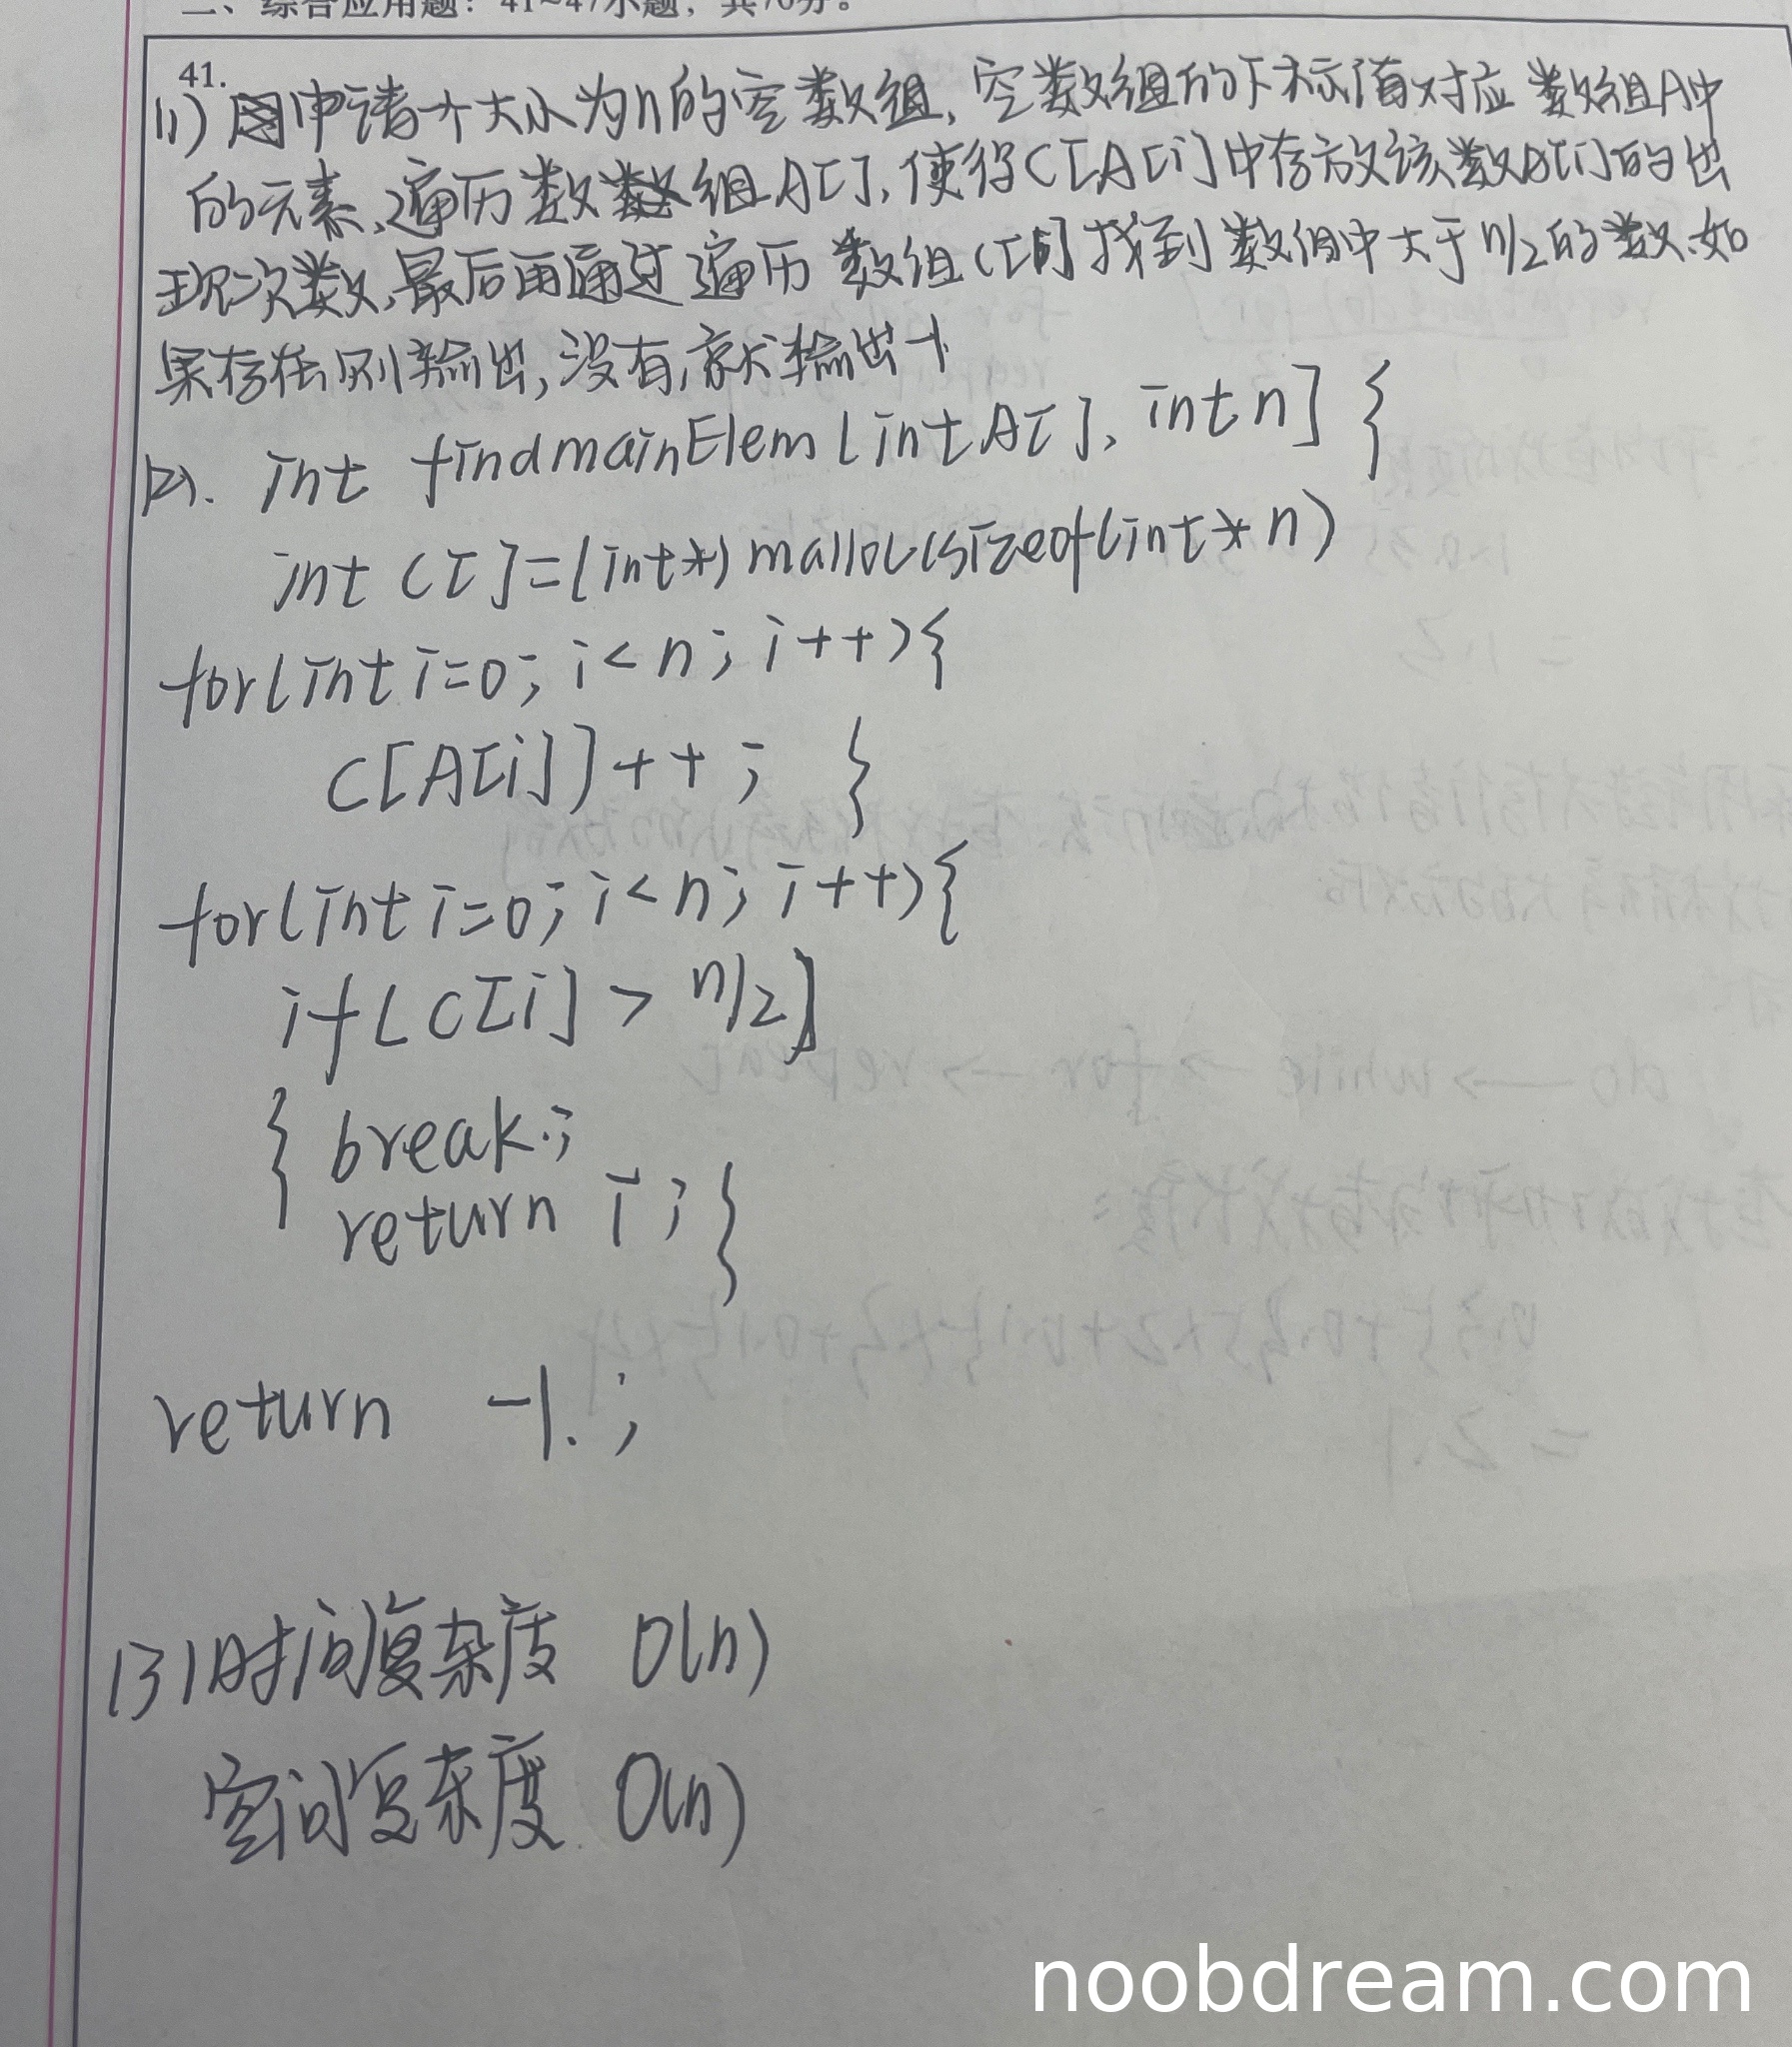 二、综合应用题：41~47小题，共70分。
41.
(1) 申请一个大小为n的空数组，空数组的下标值对应数组A中
的元素，遍历数组A[]，使得C[A[i]]中存放该数A[i]的出
现次数，最后再通过遍历数组C[]找到数组中大于n/2的数，如
果存在则输出，没有，就输出-1
(2). int findmainElem(int A[], int n){
int C[]=(int*)malloc(sizeof(int*n)
for(int i=0; i<n; i++){
C[A[i]]++; }
for(int i=0; i<n; i++){
if(C[i] > n/2)
{ break;
return i; }
return -1. ;
(3) 时间复杂度 O(n)
空间复杂度 O(n)
noobdream.com